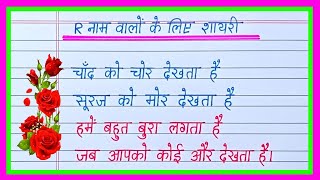 R नाम वालों के लिए शायरी
चाँद को चोर देखता है
सूरज को मोर देखता है
हमें बहुत बुरा लगता है
जब आपको कोई और देखता है।